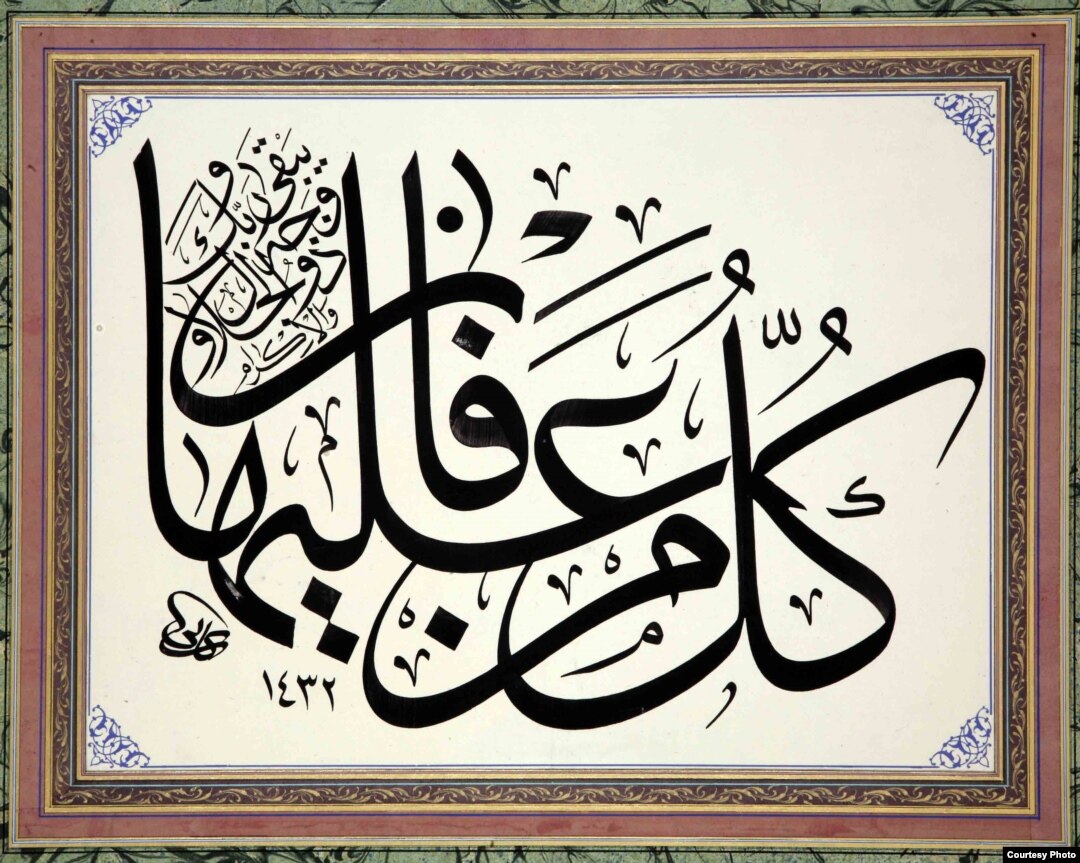 كُلُّ مَنْ عَلَيْهَا فَانٍ
وَيَبْقَى وَجْهُ رَبِّكَ ذُو الْجَلَالِ وَالْإِكْرَامِ
١٤٣٢
Courtesy Photo